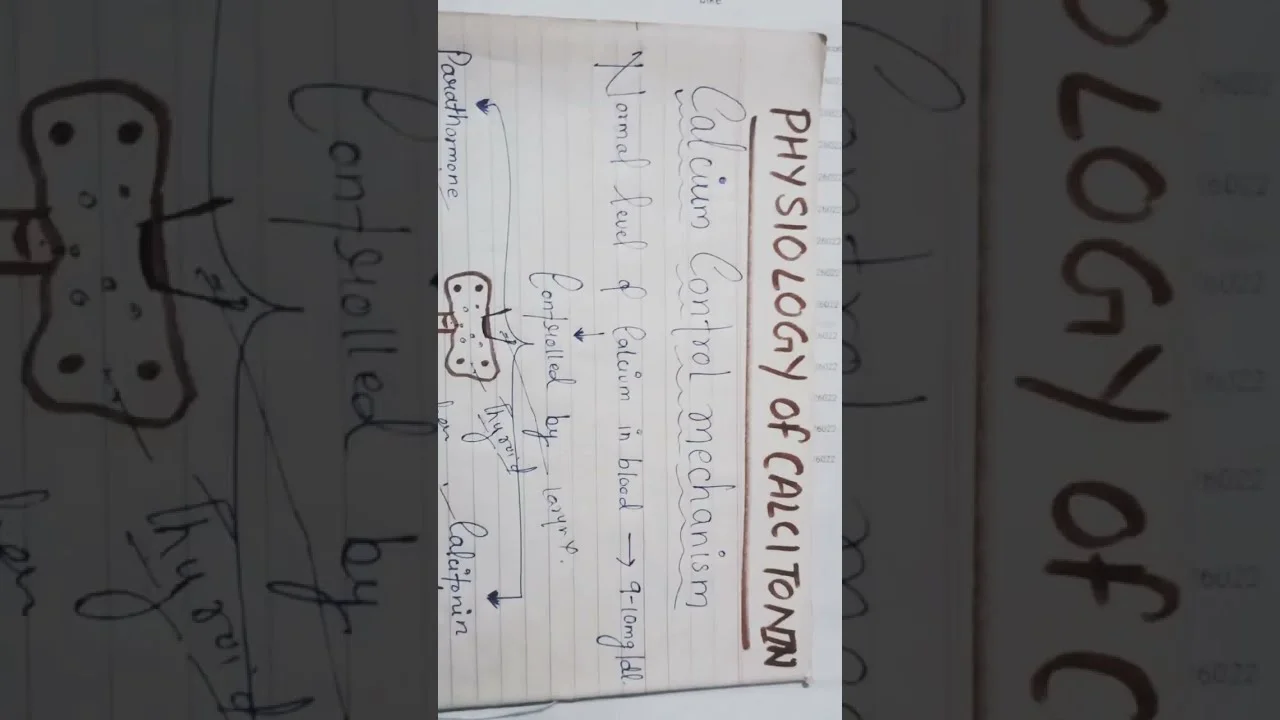 PHYSIOLOGY of CALCITONIN
Calcium Control mechanism
Normal level of Calcium in blood → 9-10mg/dl.
Controlled by
larynx.
Parathormone
Thyroid
Calcitonin